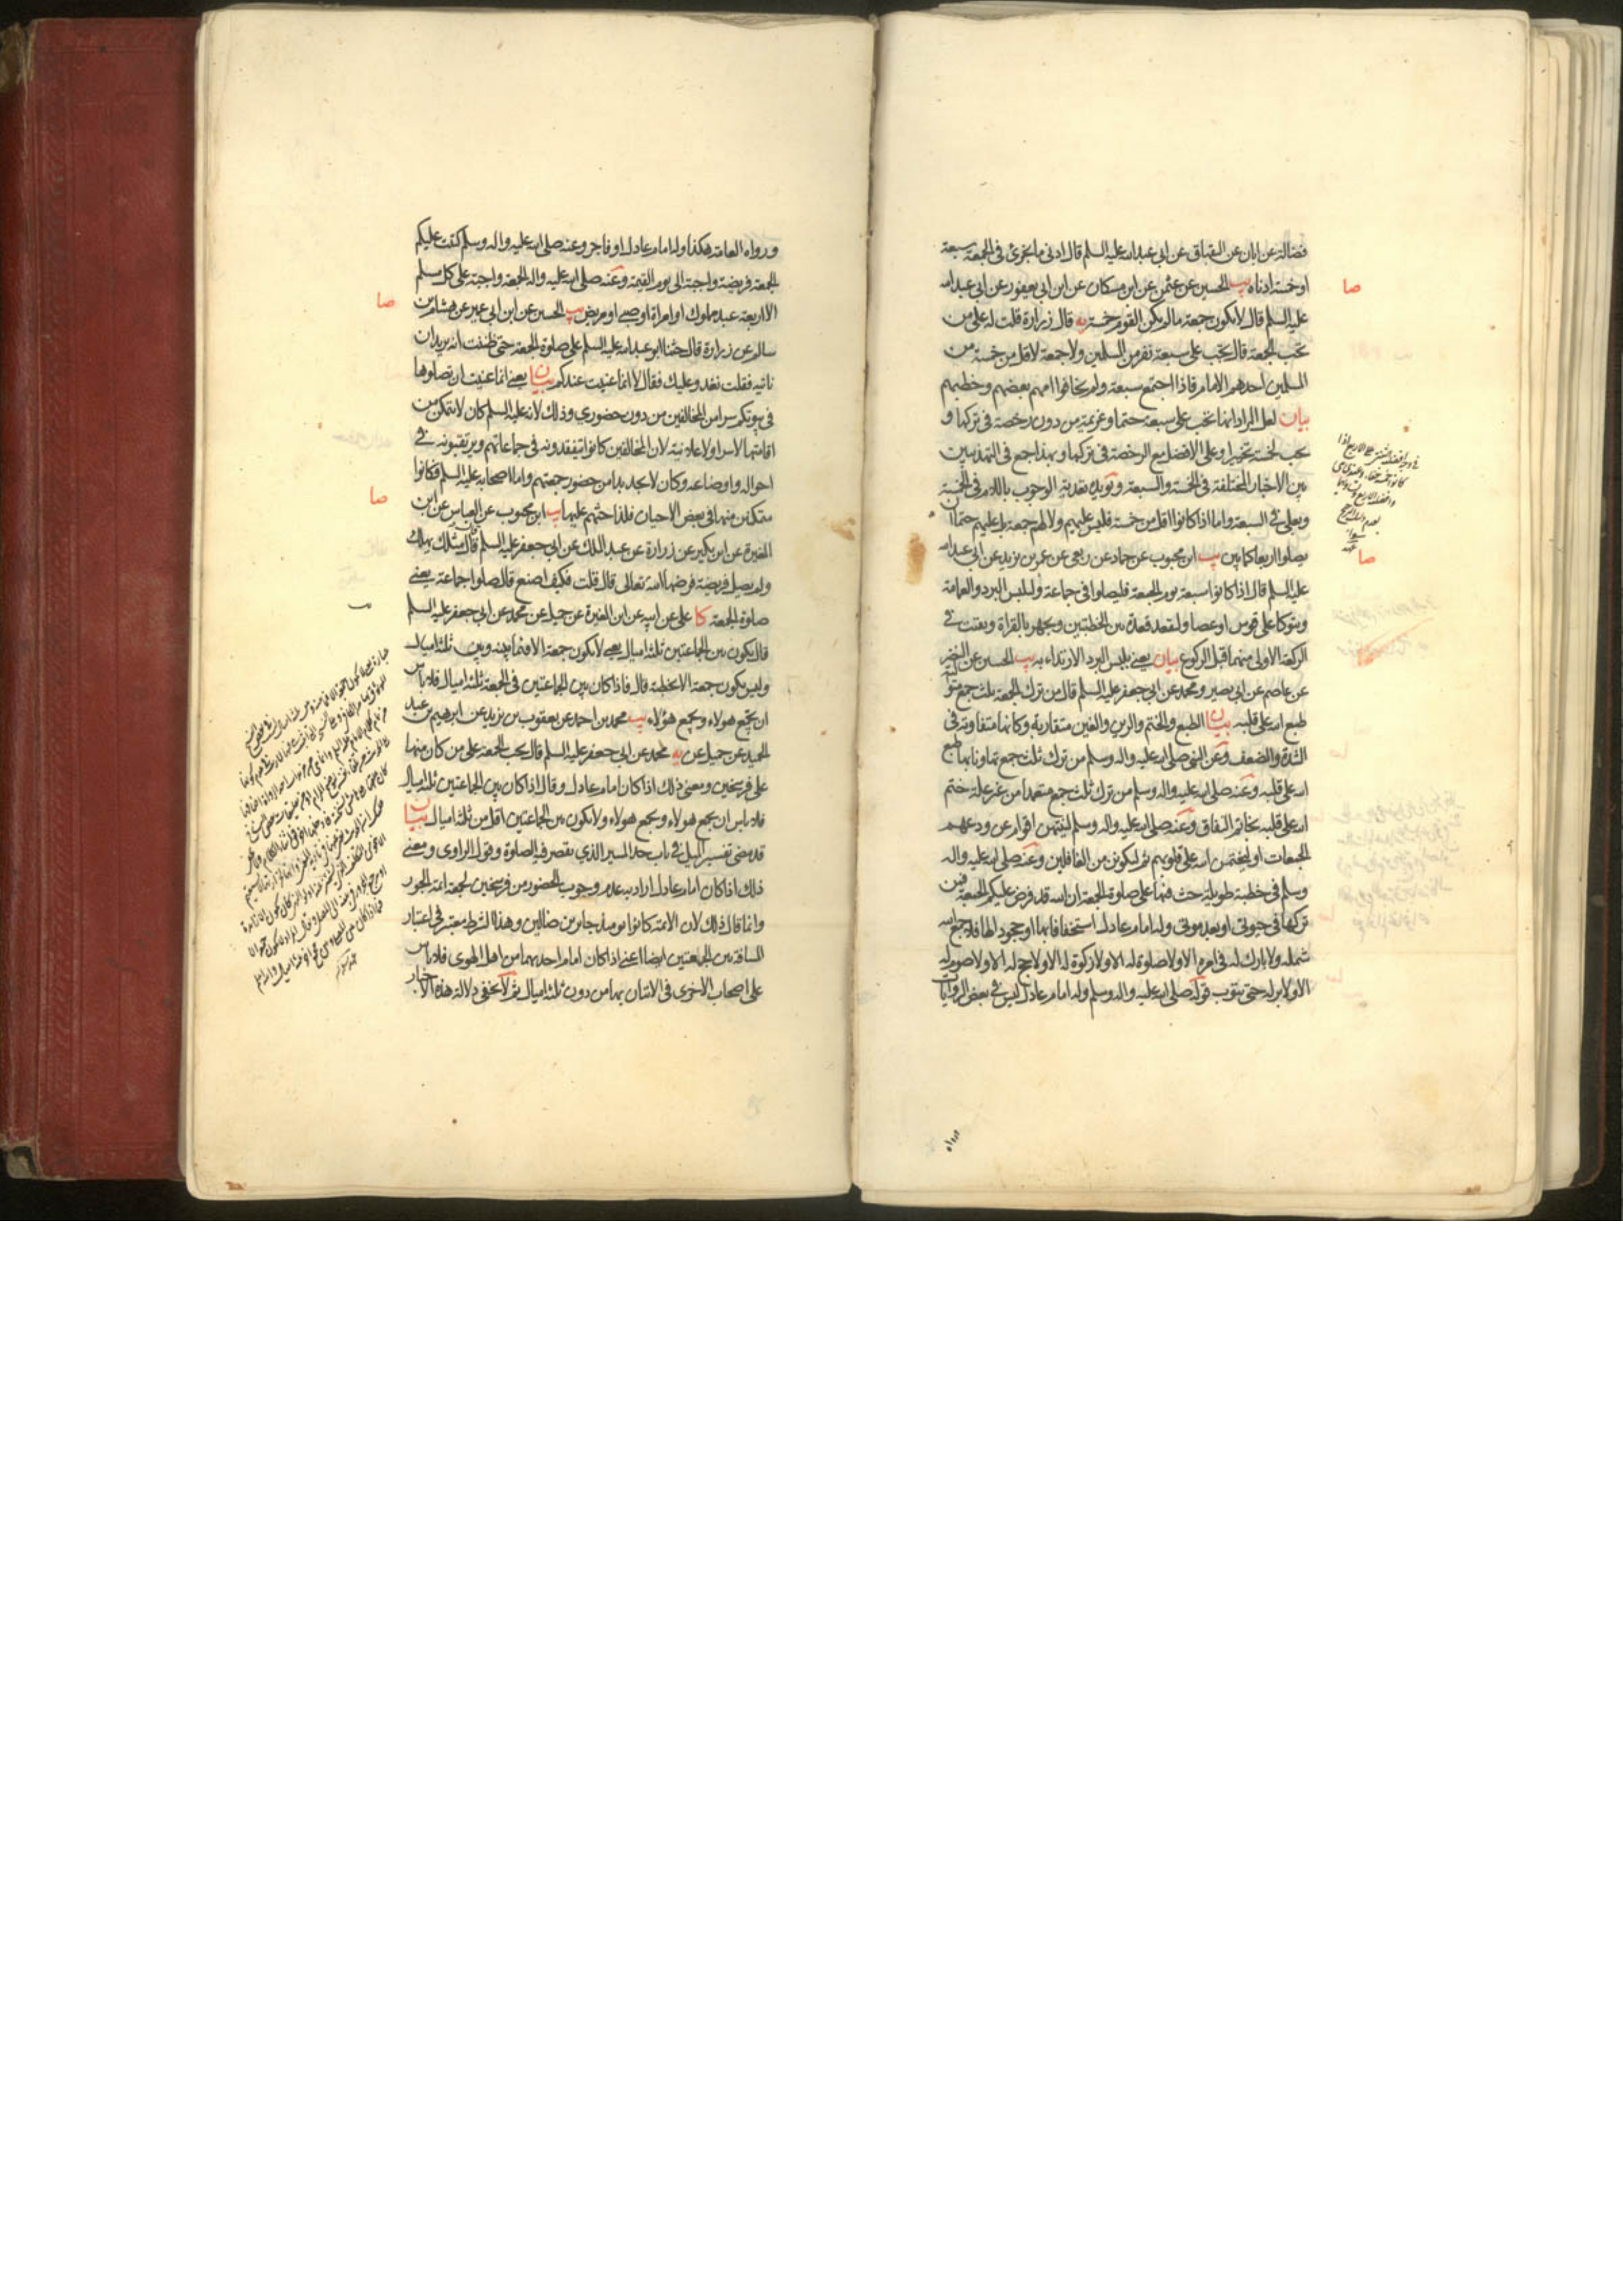 فضالة عن ابان عن البقباق عن ابى عبدالله عليه السلم قال ادنى ما يجزى فى الجمعة سبعة
او خمسة ادناه يب الحسين عن عثمن عن ابن مسكان عن ابن ابى يعفور عن ابى عبدالله
عليه السلم قال لا يكون جمعة مالم يكن القوم خمسة يه قال زرارة قلت له على من
تجب الجمعة قال تجب على سبعة نفر من المسلمين ولا جمعة لاقل من خمسة من
المسلمين احدهم الامام فاذا اجتمع سبعة ولم يخافوا امهم بعضهم وخطبهم
بيان لعل المراد انها تجب على سبعة حتما وعزيمة من دون رخصة فى تركها و
تجب لخمسة تخييرا وعلى الافضل مع الرخصة فى تركها وبهذا جمع فى التهذيبين
بين الاخبار المختلفة فى الخمسة والسبعة ويؤيده تعدية الوجوب باللام فى الخمسة
وبعلى فى السبعة واما اذا كانوا اقل من خمسة فليس عليهم ولا لهم جمعة بل عليهم حتما ان
يصلوا اربعا كما يبين يب ابن محبوب عن حماد عن ربعى عن عمر بن يزيد عن ابى عبدالله
عليه السلم قال اذا كانوا سبعة يوم الجمعة فليصلوا فى جماعة وليلبس البرد والعمامة
ويتوكا على قوس او عصا وليقعد قعدة بين الخطبتين ويجهر بالقراة ويقنت فى
الركعة الاولى منهما قبل الركوع بيان يعنى بلبس البرد الارتداء به يب الحسين عن النضر
عن عاصم عن ابى بصير ومحمد عن ابى جعفر عليه السلم قال من ترك الجمعة ثلث جمع متوالية
طبع الله على قلبه بيان الطبع والختم والرين والغين متقاربة وكانها متفاوتة فى
الشدة والضعف وعن النبى صلى الله عليه واله وسلم من ترك ثلث جمع تهاونا بها طبع
الله على قلبه وعنه صلى الله عليه واله وسلم من ترك ثلث جمع متعمدا من غير علة ختم
الله على قلبه بخاتم النفاق وعنه صلى الله عليه واله وسلم لينتهين اقوام عن ودعهم
الجمعات او ليختمن الله على قلوبهم ثم ليكونن من الغافلين وعنه صلى الله عليه واله
وسلم فى خطبة طويلة حث فيها على صلوة الجمعة ان الله قد فرض عليكم الجمعة فمن
تركها فى حيوتى او بعد موتى وله امام عادل استخفافا بها او جحودا لها فلا جمع الله
شمله ولا بارك له فى امره الا ولا صلوة له الا ولا زكوة له الا ولا حج له الا ولا صوم له
الا ولا بر له حتى يتوب قوله صلى الله عليه واله وسلم وله امام عادل ليس فى بعض الروايات
صا
صا
ورواه العامة هكذا وله امام عادل او فاجر وعنه صلى الله عليه واله وسلم كتبت عليكم
الجمعة فريضة واجبة الى يوم القيمة وعنه صلى الله عليه واله الجمعة واجبة على كل مسلم
الا اربعة عبد مملوك او امراة او صبى او مريض يب الحسين عن ابن ابى عمير عن هشام بن
سالم عن زرارة قال حثنا ابو عبدالله عليه السلم على صلوة الجمعة حتى ظننت انه يريد ان
ناتيه فقلت نغدو عليك فقال لا انما عنيت عندكم بيان يعنى انما عنيت ان تصلوها
فى بيوتكم سرا من المخالفين من دون حضورى وذلك لانه عليه السلم كان لا يتمكن من
اقامتها لا سرا ولا علانية لان المخالفين كانوا يتفقدونه فى جماعاتهم ويرتقبونه فى
احواله واوضاعه وكان لا يجد بدا من حضور جمعتهم واما اصحابه عليه السلم فكانوا
متمكنين منها فى بعض الاحيان فلذا حثهم عليها يب ابن محبوب عن العباس عن ابن
المغيرة عن ابن بكير عن زرارة عن عبد الملك عن ابى جعفر عليه السلم قال قال مثلك يهلك
ولم يصل فريضة فرضها الله تعالى قال قلت فكيف اصنع قال صلوا جماعة يعنى
صلوة الجمعة كا على عن ابيه عن ابن المغيرة عن جميل عن محمد عن ابى جعفر عليه السلم
قال يكون بين الجماعتين ثلثة اميال يعنى لا يكون جمعة الا فيما بينه وبين ثلثة اميال
وليس يكون جمعة الا بخطبة قال فاذا كان بين الجماعتين فى الجمعة ثلثة اميال فلا باس
ان يجمع هولاء ويجمع هؤلاء يب محمد بن احمد عن يعقوب بن يزيد عن ابرهيم بن عبد
الحميد عن جميل عن يه محمد عن ابى جعفر عليه السلم قال تجب الجمعة على من كان منها
على فرسخين ومعنى ذلك اذا كان امام عادل وقال اذا كان بين الجماعتين ثلثة اميال
فلا باس ان يجمع هولاء ويجمع هولاء ولا يكون بين الجماعتين اقل من ثلثة اميال بيان
قد مضى تفسير الميل فى باب حد المسير الذى يقصر فيه الصلوة وقول الراوى ومعنى
ذلك اذا كان امام عادل اراد به عدم وجوب الحضور من فرسخين لجمعة ائمة الجور
وانما قال ذلك لان الائمة كانوا يومئذ جايرين ضالين وهذا الشرط معتبر فى اعتبار
المسافة بين الجمعتين ايضا اعنى اذا كان امام احديهما من اهل الهوى فلا باس
على اصحاب الاخرى فى الاتيان بها من دون ثلثة اميال ثم لا يخفى دلالة هذه الاخبار
صا
صا